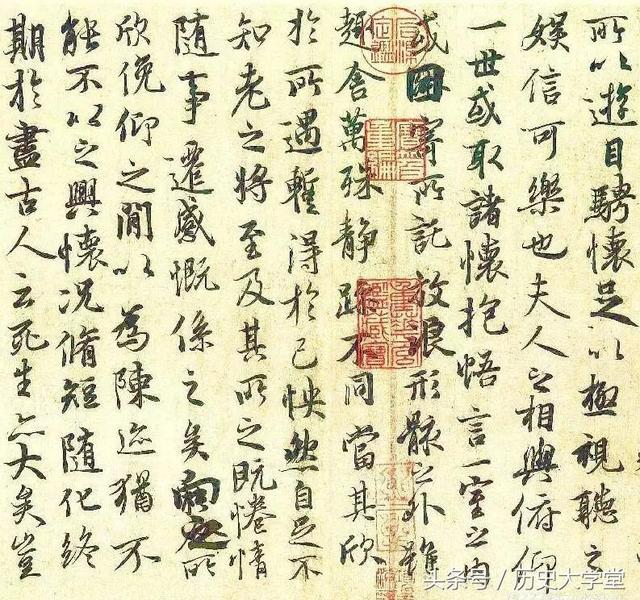 所以遊目騁懷足以極視聽之
娛信可樂也夫人之相與俯仰
一世或取諸懷抱悟言一室之內
或因寄所託放浪形骸之外雖
趣舍萬殊靜躁不同當其欣
於所遇暫得於己怏然自足不
知老之將至及其所之既惓情
隨事遷感慨係之矣向之所
欣俛仰之閒以為陳迹猶不
能不以之興懷況脩短隨化終
期於盡古人云死生亦大矣豈
头条号／历史大学堂